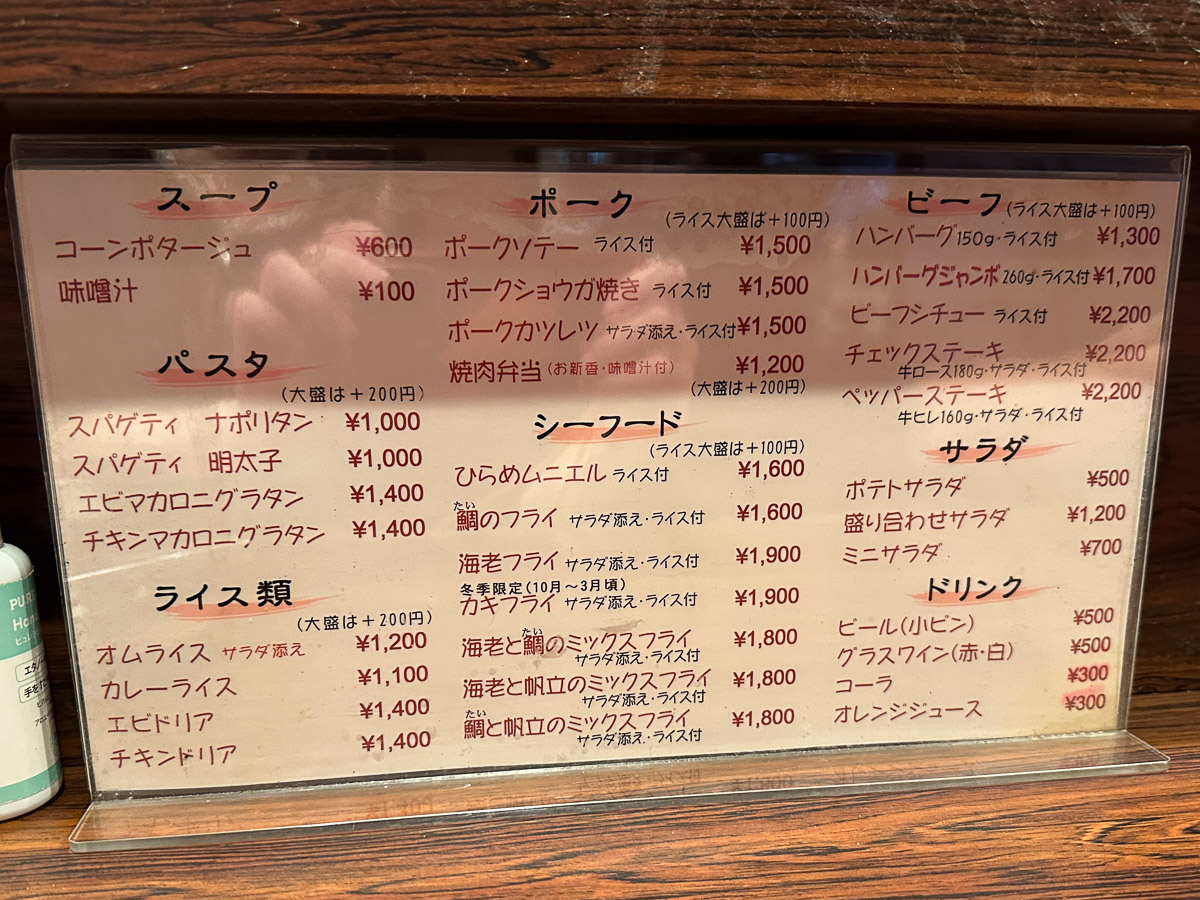 スープ
コーンポタージュ ¥600
味噌汁 ¥100
パスタ
(大盛は+200円)
スパゲティ ナポリタン ¥1,000
スパゲティ 明太子 ¥1,000
エビマカロニグラタン ¥1,400
チキンマカロニグラタン ¥1,400
ライス類
(大盛は+200円)
オムライス サラダ添え ¥1,200
カレーライス ¥1,100
エビドリア ¥1,400
チキンドリア ¥1,400
ポーク
(ライス大盛ば+100円)
ポークソテー ライス付 ¥1,500
ポークショウガ焼き ライス付 ¥1,500
ポークカツレツ サラダ添え・ライス付 ¥1,500
焼肉弁当(お新香・味噌汁付) ¥1,200
(大盛は+200円)
シーフード
(ライス大盛は+100円)
ひらめムニエル ライス付 ¥1,600
たい
鯛のフライ サラダ添え・ライス付 ¥1,600
海老フライ サラダ添え・ライス付 ¥1,900
冬季限定(10月~3月頃)
カキフライ サラダ添え・ライス付 ¥1,900
たい
海老と鯛のミックスフライ ¥1,800
サラダ添え・ライス付
海老と帆立のミックスフライ ¥1,800
サラダ添え・ライス付
たい
鯛と帆立のミックスフライ ¥1,800
サラダ添え・ライス付
ビーフ(ライス大盛は+100円)
ハンバーグ150g・ライス付 ¥1,300
ハンバーグジャンボ260g・ライス付 ¥1,700
ビーフシチュー ライス付 ¥2,200
チェックステーキ ¥2,200
牛ロース180g・サラダ・ライス付
ペッパーステーキ ¥2,200
牛ヒレ160g・サラダ・ライス付
サラダ
ポテトサラダ ¥500
盛り合わせサラダ ¥1,200
ミニサラダ ¥700
ドリンク
ビール(小ビン) ¥500
グラスワイン(赤・白) ¥500
コーラ ¥300
オレンジジュース ¥300